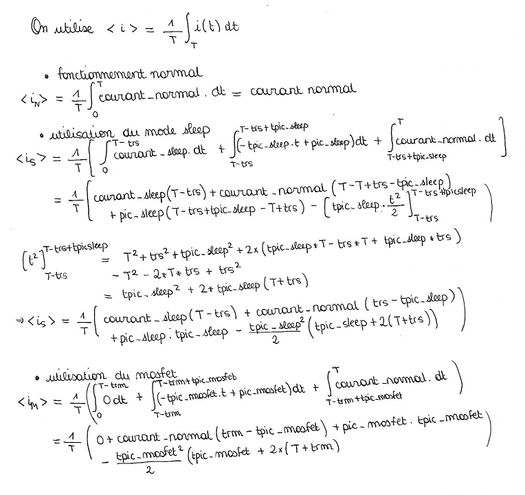 On utilise <i> = 1/T ∫_T i(t) dt
• fonctionnement normal
<i_N> = 1/T ∫_0^T courant_normal . dt = courant normal
• utilisation du mode sleep
<i_S> = 1/T [ ∫_0^{T-trs} courant_sleep. dt + ∫_{T-trs}^{T-trs+tpic_sleep} (-tpic_sleep.t + pic_sleep) dt + ∫_{T-trs+tpic_sleep}^T courant_normal. dt ]
= 1/T ( courant_sleep (T-trs) + courant_normal (T-T+trs-tpic_sleep)
+ pic_sleep (T-trs+tpic_sleep -T+trs) - [ tpic_sleep. t²/2 ]_{T-trs}^{T-trs+tpicsleep} )
[t²]_{T-trs}^{T-trs+tpicsleep} = T² + trs² + tpic_sleep² + 2x (tpic_sleep * T - trs * T + tpic_sleep * trs)
- T² - 2*T* trs + trs²
= tpic_sleep² + 2* tpic_sleep (T+trs)
⇒ <i_S> = 1/T ( courant_sleep (T-trs) + courant_normal (trs - tpic_sleep)
+ pic_sleep . tpic_sleep - tpic_sleep²/2 (tpic_sleep + 2(T+trs)) )
• utilisation du mosfet
<i_M> = 1/T ( ∫_0^{T-trm} 0 dt + ∫_{T-trm}^{T-trm+tpic_mosfet} (-tpic_mosfet.t + pic_mosfet) dt + ∫_{T-trm+tpic_mosfet}^T courant_normal. dt )
= 1/T ( 0 + courant_normal (trm - tpic_mosfet) + pic_mosfet . tpic_mosfet
- tpic_mosfet²/2 (tpic_mosfet + 2x(T+trm) )